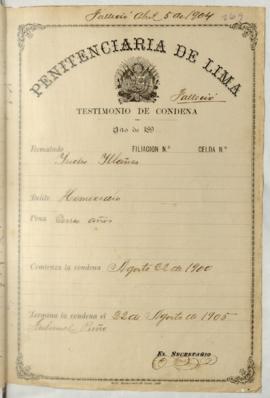 Falleció Abril 5 de 1904
PENITENCIARIA DE LIMA
Falleció
TESTIMONIO DE CONDENA
Año de 189
Rematado FILIACION N.° CELDA N.°
Delito Homicidio
Pena años
Comienza la condena Agosto 22 de 1900
Termina la condena el 22 de Agosto de 1905
EL SECRETARIO